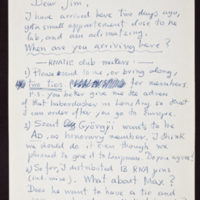 Dear Jim,
I have arrived here two days ago,
got a small appartement close to the
lab, and am acclimatizing.
When are you arriving here?
RNATIE club matters
1) Please send to me, or bring along,
two ties for members.
P.S. you better give me the adress
of that haberdasher in Los Ang. so that
I can order after you go to Europe.
2) Szent Györgyi wants to be
AD, as honorary member. I think
we should do it even though we
planned to give it to Lipmann. Do you agree?
3) So far, I distributed 12 RNA pins
(incl. mine). What about Max?
Does he want to have a tie and